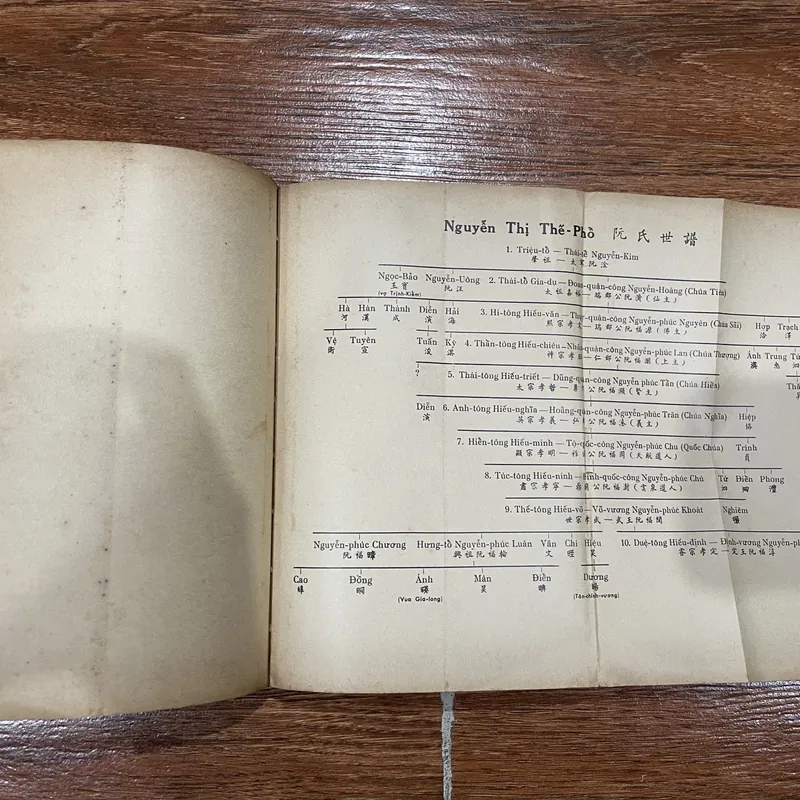 Nguyễn Thị Thế-Phò 阮氏世譜
1. Triệu-tổ — Thái-tể Nguyễn-Kim
肇祖 — 太宰阮淦
Ngọc-Bảo Nguyễn-Uông 2. Thái-tổ Gia-dụ — Đoan-quận-công Nguyễn-Hoàng (Chúa Tiên)
玉寶 阮汪 太祖嘉裕 — 端郡公阮潢 (仙主)
(vợ Trịnh-Kiểm)
Hà Hán Thành Diễn Hải 3. Hi-tông Hiếu-văn — Thụy-quận-công Nguyễn-phúc Nguyên (Chúa Sãi) Hợp Trạch
河 漢 成 演 海 熙宗孝文 — 瑞郡公阮福源 (佛主) 洽 澤
Vệ Tuyên Tuấn Kỳ 4. Thần-tông Hiếu-chiêu — Nhân-quận-công Nguyễn-phúc Lan (Chúa Thượng) Ánh Trung Tứ
衛 宣 淇 神宗孝昭 — 仁郡公阮福瀾 (上主)
? 5. Thái-tông Hiếu-triết — Dũng-quận-công Nguyễn phúc Tần (Chúa Hiền)
太宗孝哲 — 勇郡公阮福瀕 (賢主)
Diễn 6. Anh-tông Hiếu-nghĩa — Hoằng-quận-công Nguyễn-phúc Trăn (Chúa Nghĩa) Hiệp
演 英宗孝義 — 公阮福溱 (義主)
7. Hiển-tông Hiếu-minh — Tộ-quốc-công Nguyễn-phúc Chu (Quốc Chúa) Trinh
顯宗孝明 — 祚國公阮福週 (天縱道人)
8. Túc-tông Hiếu-ninh — Đỉnh-quốc-công Nguyễn-phúc Chú Tứ Điền Phong
肅宗孝寧 — 公阮福 (雲泉道人) 泗 澧
9. Thế-tông Hiếu-võ — Võ-vương Nguyễn-phúc Khoát Nghiêm
世宗孝武 — 武王阮福闊
Nguyễn-phúc Chương Hưng-tổ Nguyễn-phúc Luân Văn Chí Hiệu 10. Duệ-tông Hiếu-định — Định-vương
阮福暲 興祖阮福 文 昊 睿宗孝定 — 定王阮福淳
Cao Đồng Ánh Mân Điền Dương
(Vua Gia-long) (Tân-chính-vương)